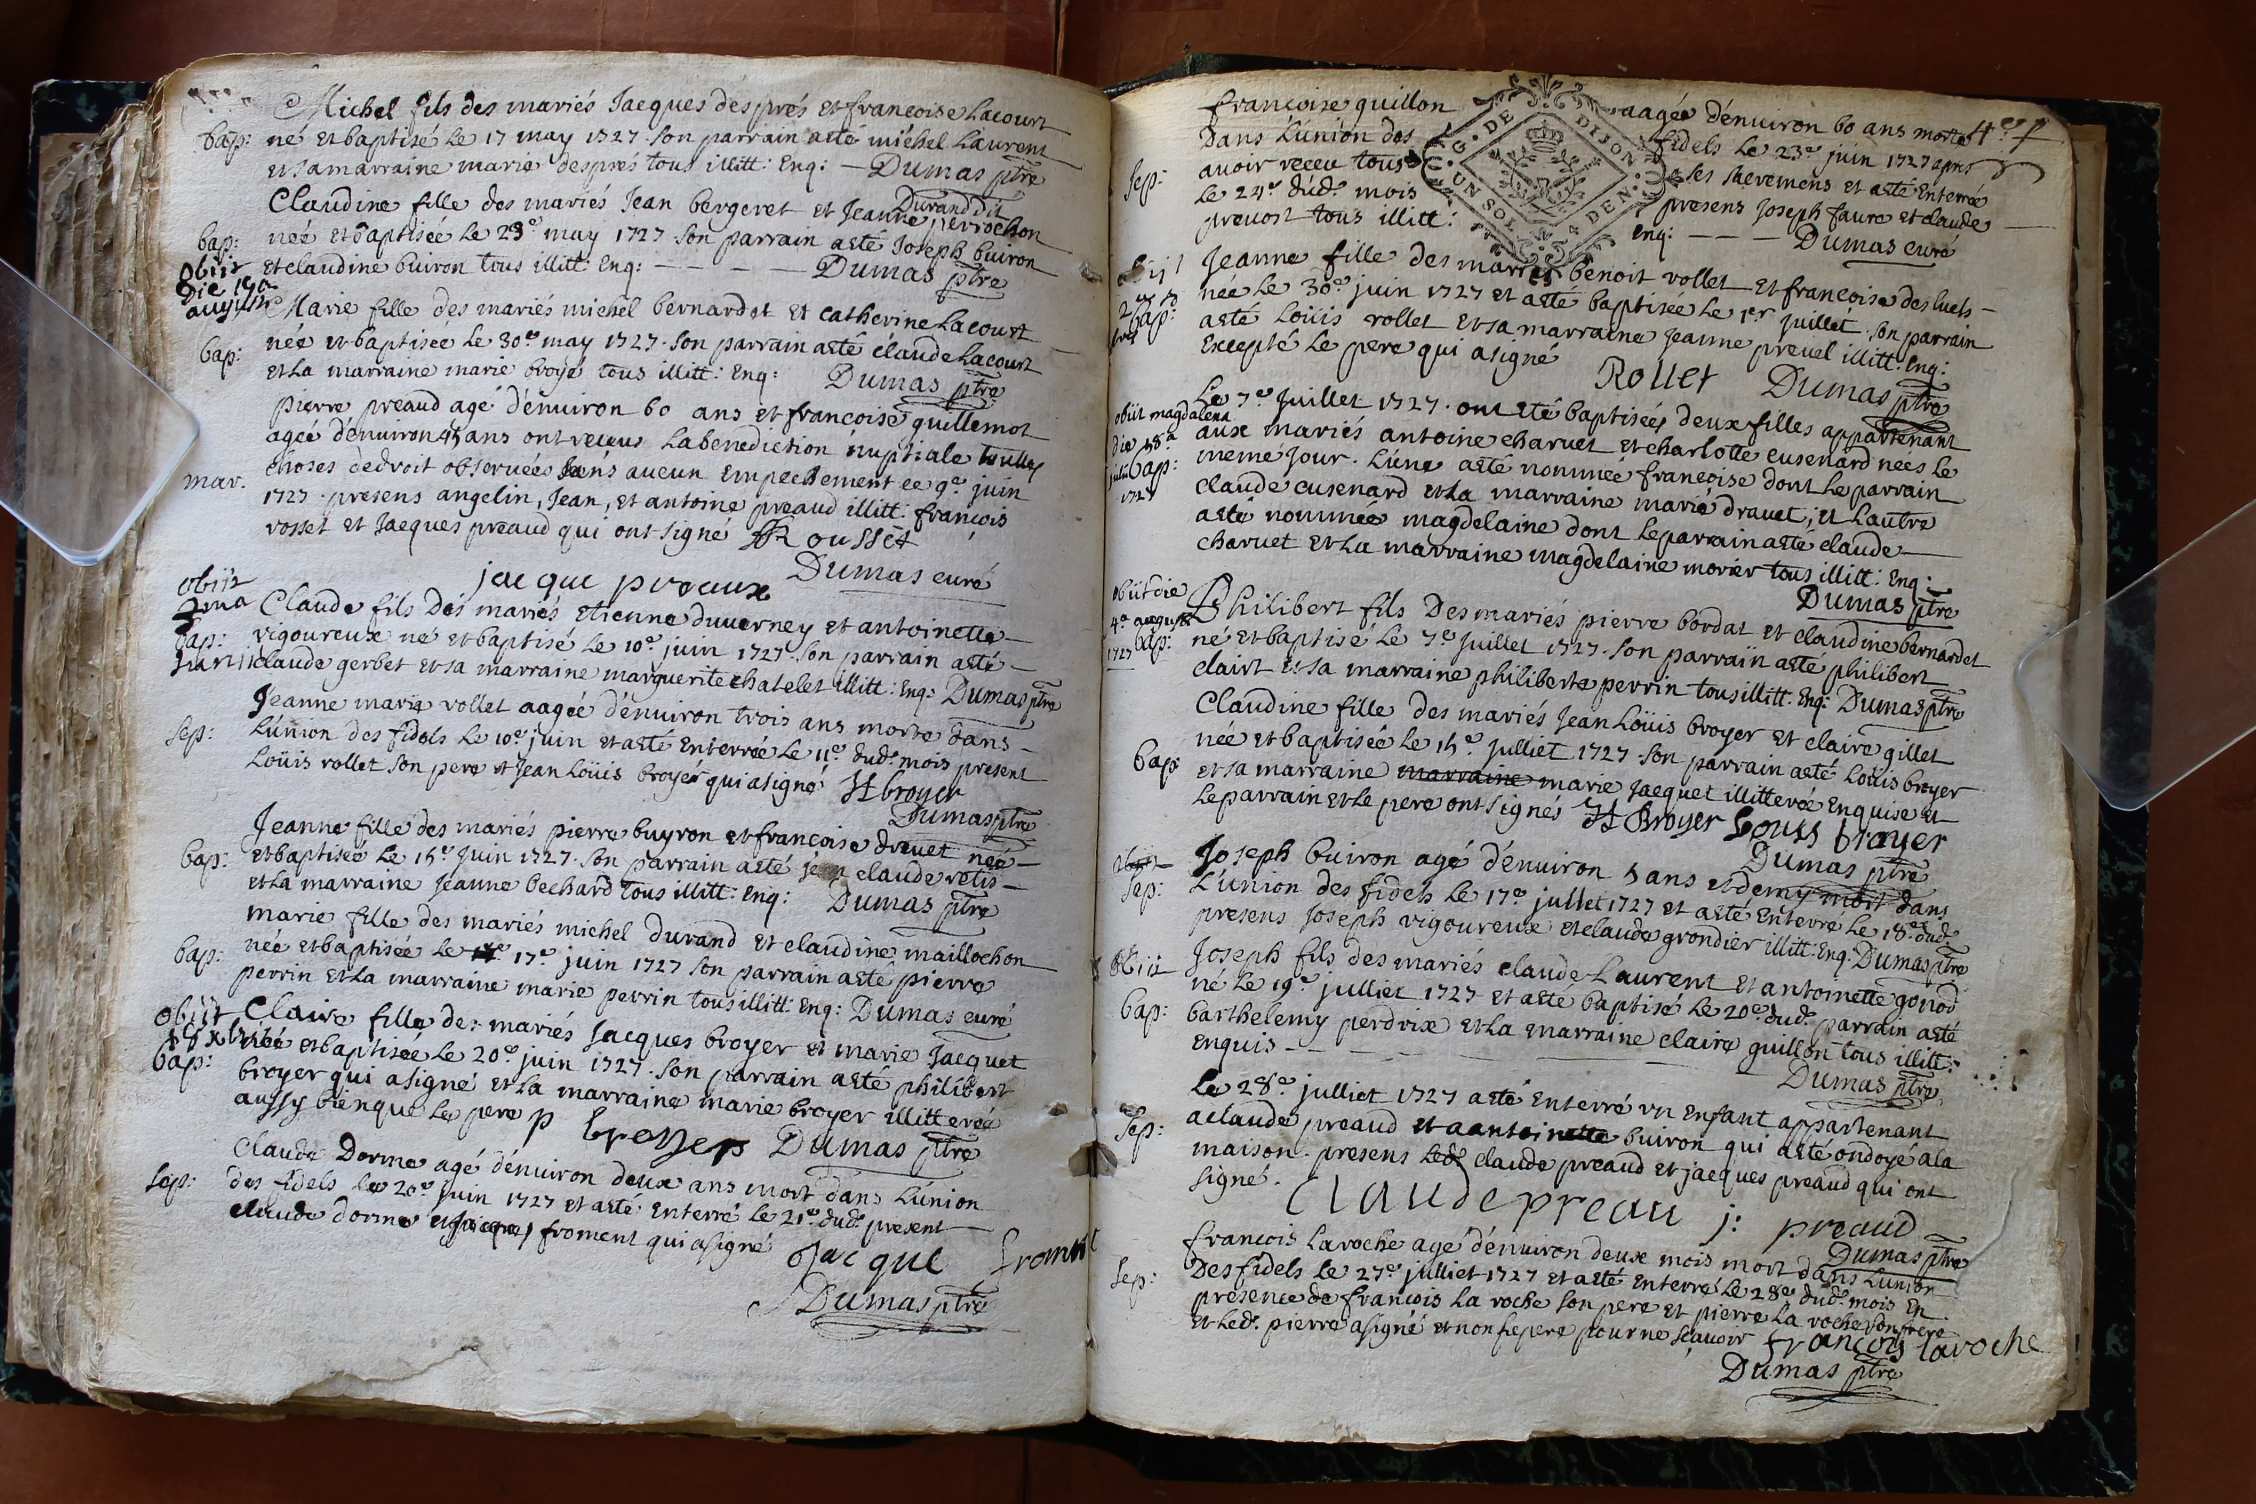 Michel fils des mariés Jacques després et francoise Lacourt
bap: né et baptisé Le 17 may 1727. Son parrain aeté michel Laurent
et sa marraine marie després tous illitt: Enq: — Dumas ptre
Claudine fille des mariés Jean bergeret et Jeanne perrochon
Durand dit
bap: née et baptisée Le 29e may 1727 Son parrain aeté Joseph buiron
et claudine buiron tous illitt: Enq: — — — — Dumas ptre
obiit
die 19a
augusti
Marie fille des mariés michel bernardet et catherine Lacourt
bap: née et baptisée Le 30e may 1727. Son parrain aeté claude Lacourt
et La marraine marie broyé tous illitt: Enq: Dumas ptre
pierre preaud agé d'enuiron 60 ans et francoise guillemot
agée d'enuiron 45 ans ont receus La benediction nuptiale toutes
choses dedroit obseruées sans aucun Empechement ce 9e juin
mar. 1727. presens angelin, Jean, et antoine preaud illitt: françois
rosset et Jacques preaud qui ont signé Rousset
jacque preaux Dumas curé
obiit
2ma
junii
Claude fils des mariés etienne duuerney et antoinette
bap: vigoureux né et baptisé Le 10e juin 1727. Son parrain aeté
claude gerbet et sa marraine marguerite chatelet illitt: Enq: Dumas ptre
Jeanne marie rollet aagée d'enuiron trois ans morte dans
Sep: L'union des fidels Le 10e juin et aeté Enterrée Le 11e dud. mois present
Loüis rollet son pere et Jean Loüis broyer qui a signé Jl broyer
Dumas ptre
Jeanne fille des mariés pierre buyron et francoise drevet née
bap: et baptisée Le 15e Juin 1727. Son parrain aeté jean claude retis
et La marraine Jeanne bechard tous illitt: Enq: Dumas ptre
marie fille des mariés michel durand et claudine maillochon
bap: née et baptisée Le 17e juin 1727 Son parrain aeté pierre
perrin et La marraine marie perrin tous illitt: Enq: Dumas curé
obiit
18 xbris
Claire fille des mariés Jacques broyer et marie Jacquet
bap: née et baptisée Le 20e juin 1727. Son parrain aeté philibert
broyer qui a signé et La marraine marie broyer illitterée
aussy bienque Le pere p broyer Dumas ptre
Claude Dorme agé d'enuiron deux ans mort dans L'union
Sep: des fidels Le 20e juin 1727 et aeté Enterré Le 21e dud. present
claude dorme et jacques froment qui a signé
Jacque froment
Dumas ptre
francoise guillon aagée d'enuiron 60 ans morte
Dans L'union des fidels Le 23e juin 1727 apres
Sep: auoir receu tous Les sacremens et aeté Enterrée
Le 24e dud. mois presens Joseph faure et claude
preuost tous illitt: Enq: — — — Dumas curé
G. DE DIJON
UN SOL 4 DEN.
Jeanne fille des mariés benoit rollet et francoise desluels
bap: née Le 30e juin 1727 et aeté baptisée Le 1er juillet. Son parrain
aeté Loüis rollet et sa marraine Jeanne preuel illitt: Enq:
Excepté Le pere qui a signé Rollet Dumas ptre
obiit magdalena
die 18a
julii
1727
Le 7e Juillet 1727. ont eté baptisées deux filles appartenant
aux mariés antoine charuet et charlotte cusenard nées Le
bap: meme Jour. L'une aeté nommée francoise dont Le parrain
claude cusenard et La marraine marie drauet; et Lautre
aeté nommée magdelaine dont Le parrain aeté claude
charuet et La marraine magdelaine morier tous illitt: Enq:
Dumas ptre
obiit die
4a augusti
1727
Philibert fils Des mariés pierre bordat et claudine bernardet
bap: né et baptisé Le 7e Juillet 1727. Son parrain aeté philibert
clairt et sa marraine philiberte perrin tous illitt. Enq: Dumas ptre
Claudine fille des mariés Jean Loüis broyer et claire gillet
née et baptisée Le 15e Julliet 1727 Son parrain aeté Loüis broyer
bap: et sa marraine marraine marie Jacquet illitterée Enquise et
Le parrain et Le pere ont signés Jl Broyer Louis broyer
Dumas ptre
obiit
Joseph buiron agé d'enuiron 5 ans et demy mort dans
Sep: L'union des fidels Le 17e jullet 1727 et aeté Enterré Le 18e dud.
presens Joseph vigoureux et claude grondier illitt: Enq: Dumas ptre
obiit Joseph fils des mariés claude Laurent et antoinette gonod
né Le 19e julliet 1727 et aeté baptisé Le 20e dud. parrain aeté
bap: barthelemy perdrix et La marraine claire guillon tous illitt:
Enquis — — — — Dumas ptre
Le 28e julliet 1727 aeté Enterré un Enfant appartenant
Sep: a claude preaud et a antoinette buiron qui aeté ondoyé a la
maison. presens Led. claude preaud et jacques preaud qui ont
signé. Claude preau j: preaud
Dumas ptre
francois Laroche agé d'enuiron deux mois mort dans L'union
Sep: Des fidels Le 27e julliet 1727 et aeté Enterré Le 28e dud. mois En
presence de francois La roche son pere et pierre La roche son frere
et Led. pierre a signé et non le pere pour ne scauoir francois laroche
Dumas ptre